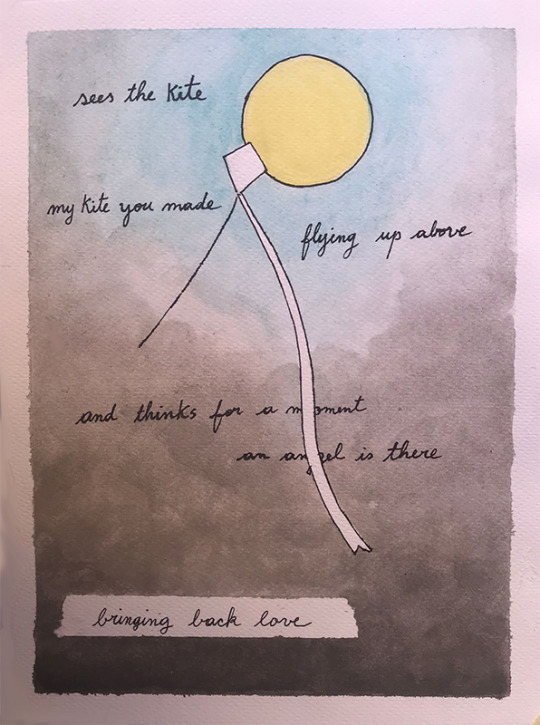 sees the kite
my kite you made
flying up above
and thinks for a moment
an angel is there
bringing back love